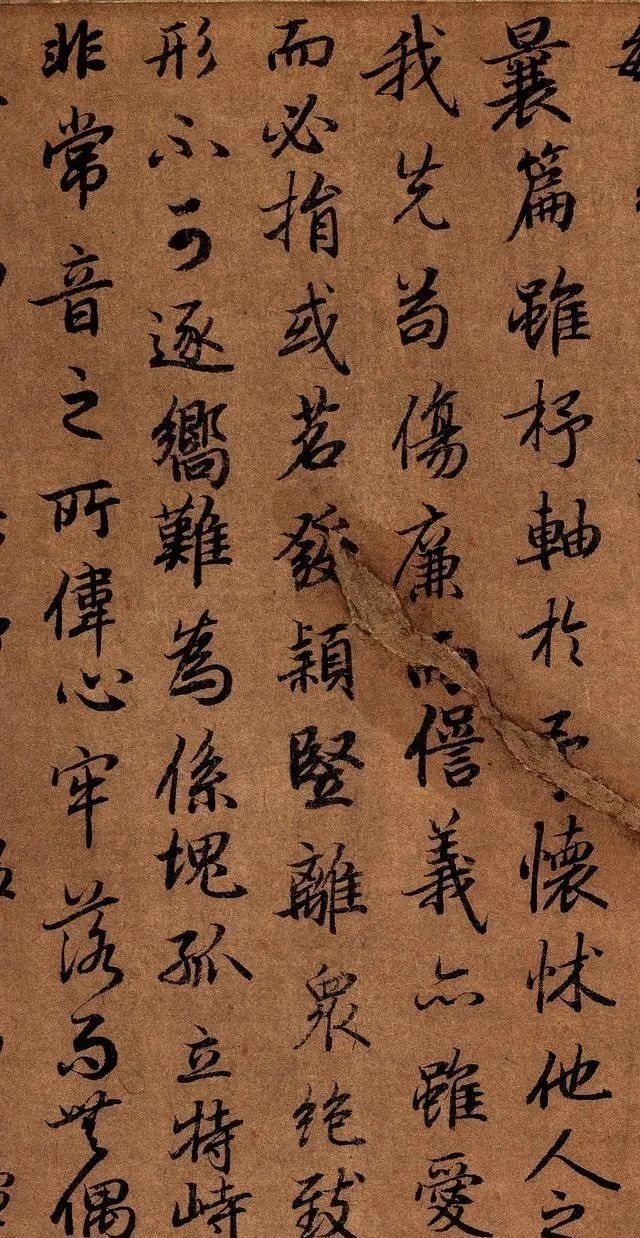 曩篇雖杼軸於予懷怵他人之
我先苟傷廉而愆義亦雖愛
而必捐或苕發穎竪離衆絶致
形不可逐嚮難為係塊孤立特峙
非常音之所偉心牢落而無偶